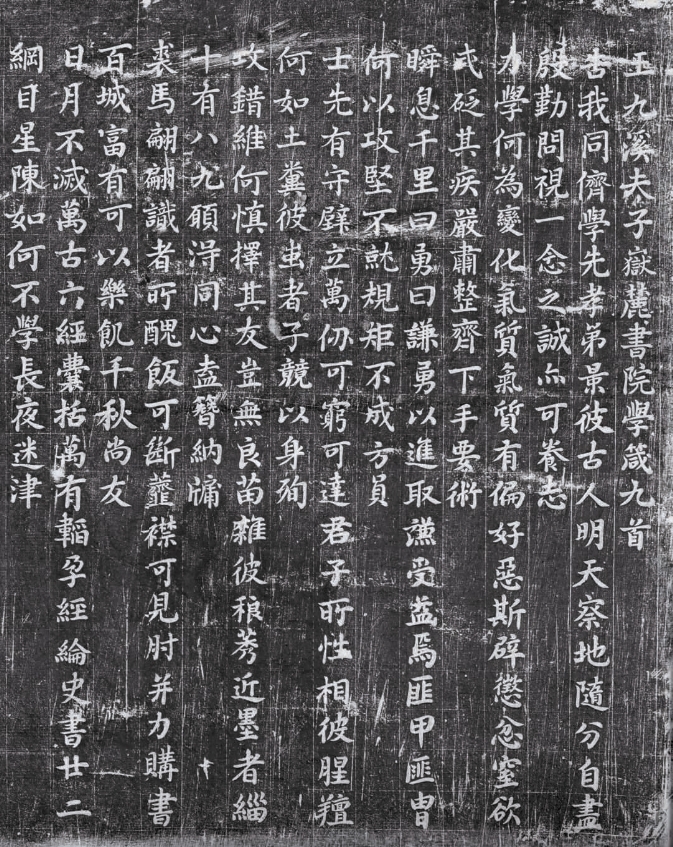 王九溪夫子嶽麓書院學箴九首
告我同儕學先孝弟景彼古人明天察地隨分自盡
殷勤問視一念之誠亦可養志
力學何為變化氣質氣質有偏好惡斯辟懲忿窒欲
式砭其疾嚴肅整齊下手要術
瞬息千里曰勇曰謙勇以進取謙受益焉匪甲匪冑
何以攻堅不就規矩不成方員
士先有守壁立萬仞可窮可達君子所性相彼腥羶
何如土糞彼蚩者子競以身殉
攻錯維何慎擇其友豈無良苗雜彼稂莠近墨者緇
十有八九願淂同心盍簪納牖
裘馬翩翩識者所醜飯可斷虀襟可見肘并力購書
百城富有可以樂飢千秋尚友
日月不滅萬古六經囊括萬有韜孕經綸史書廿二
綱目星陳如何不學長夜迷津